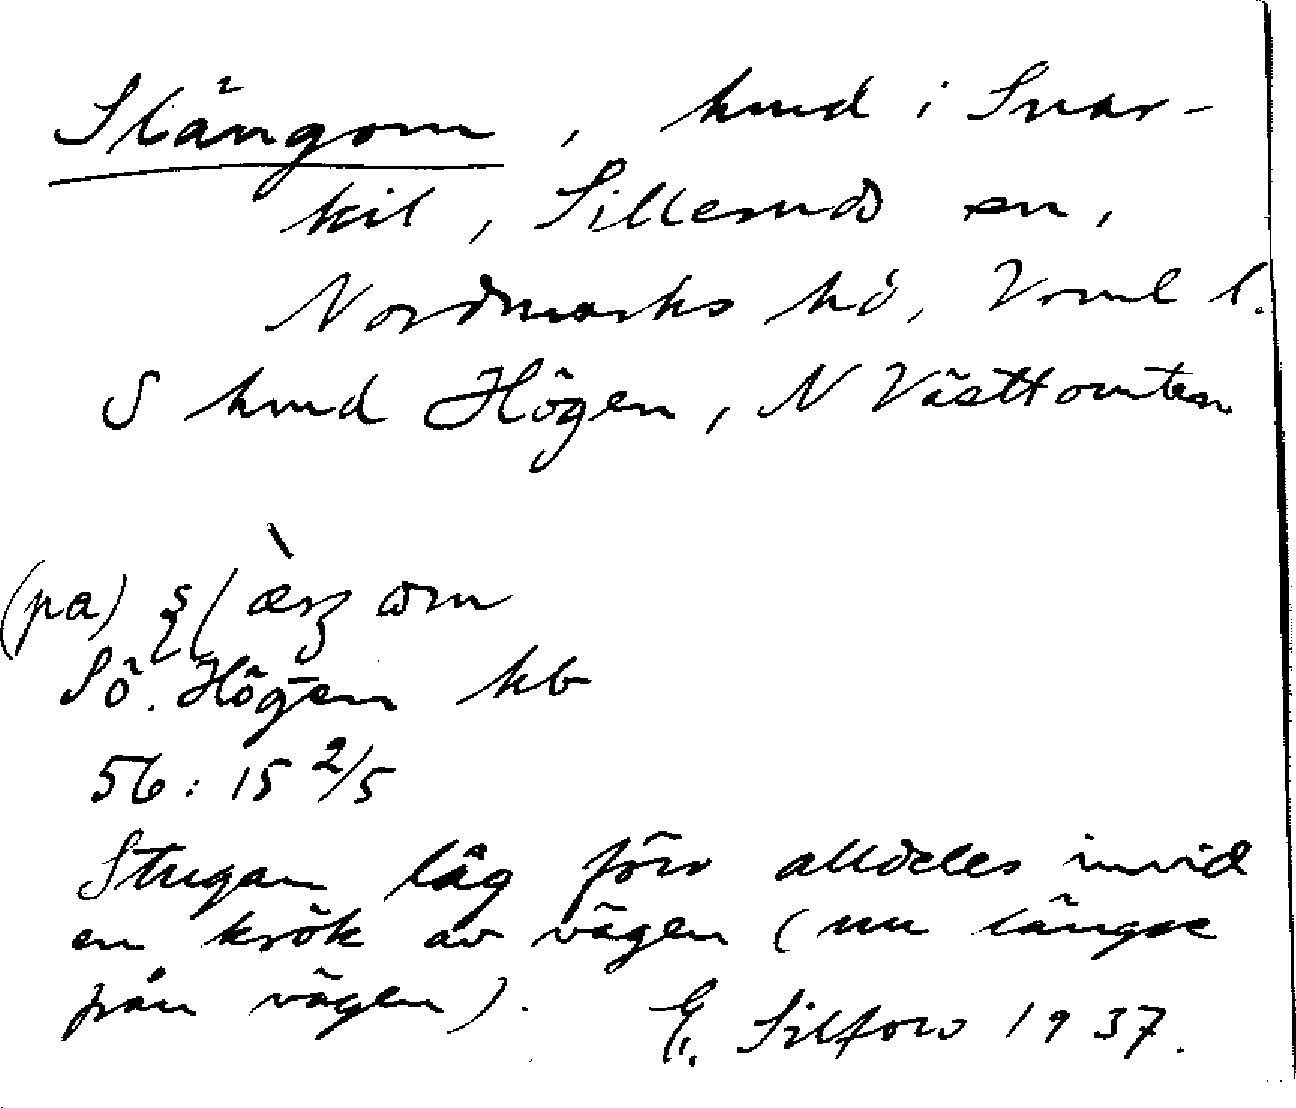 Slängom, hmd i Svar-
kil, Silleruds sn,
Nordmarks hd, Vrml l.
S hmd Högen, N Västtomten
(pa)
Sö. Högen kb
56: 15 2/5
Stugan låg förr alldeles invid
en krök av vägen (nu längre
från vägen). E. Silfors 1937.